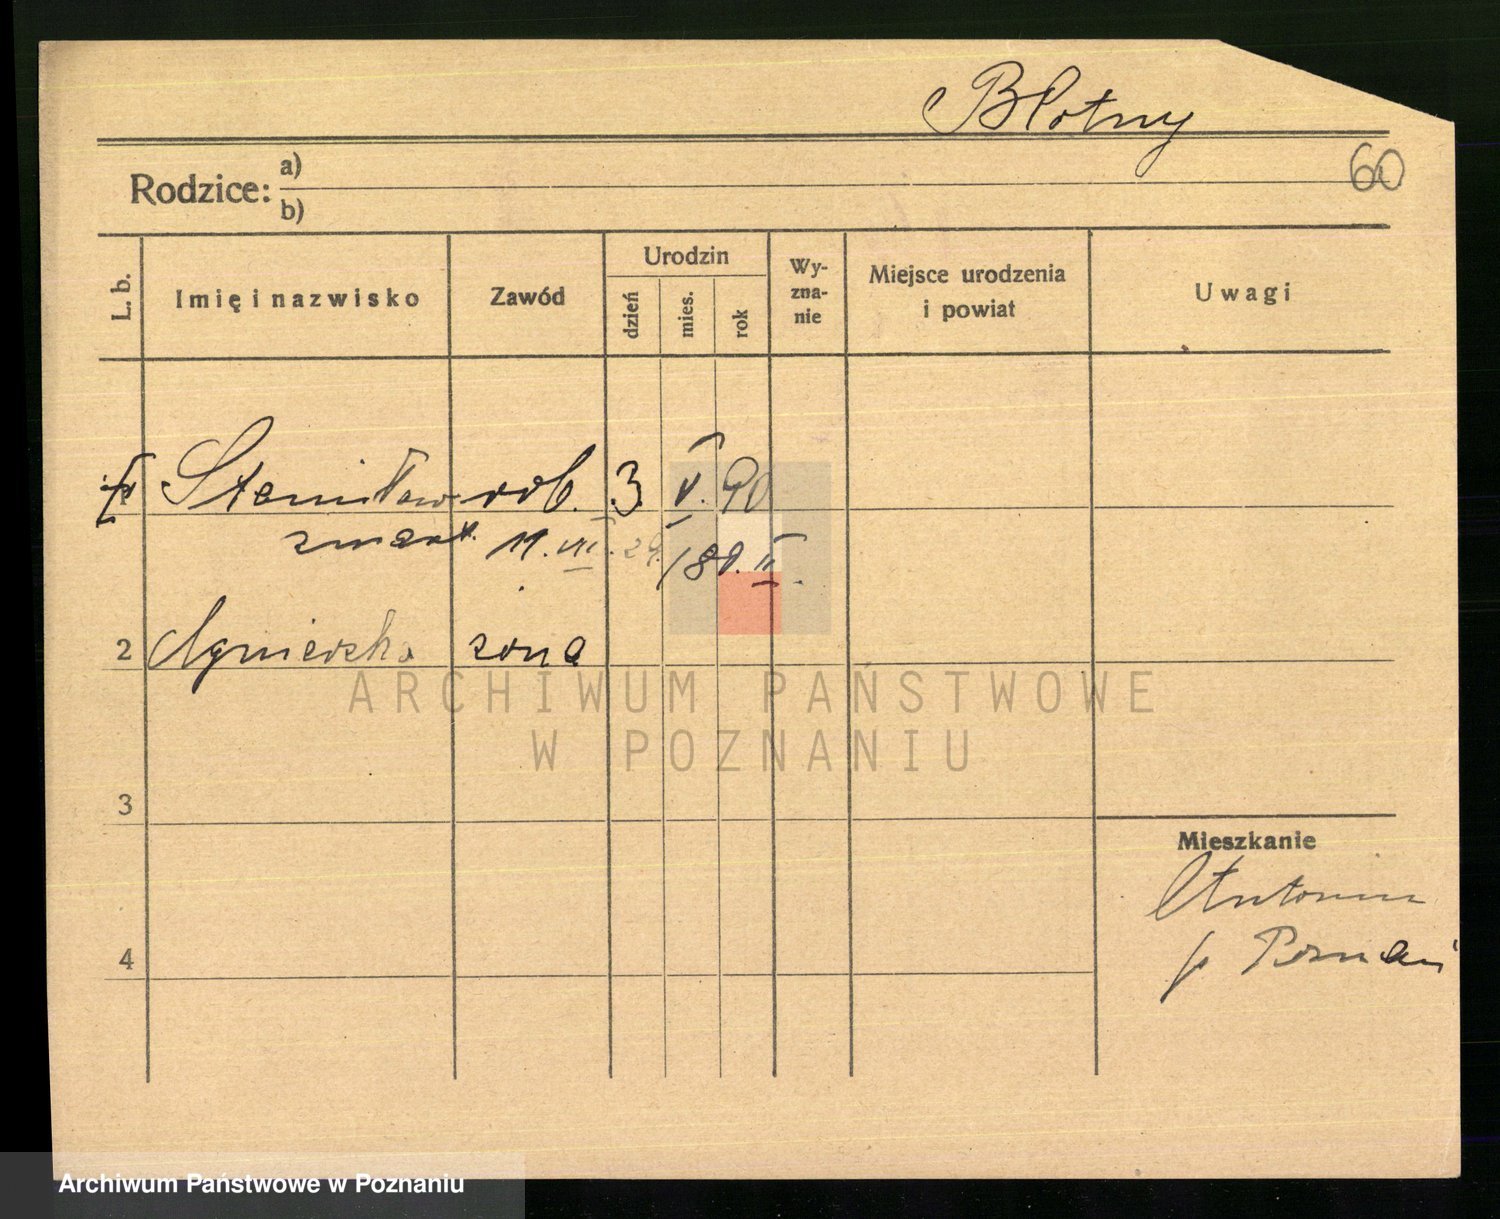 Błotny
60
Rodzice: a)
b)
L. b.
Imię i nazwisko
Zawód
Urodzin
dzień
mies.
rok
Wy-
zna-
nie
Miejsce urodzenia
i powiat
Uwagi
1 Stanisław rob. 3. V. 90
zmarł. 11. VII. 29. /89. II.
2 Agnieszka żona
3
4
Mieszkanie
Antonin
p Poznań
ARCHIWUM PAŃSTWOWE
W POZNANIU
Archiwum Państwowe w Poznaniu